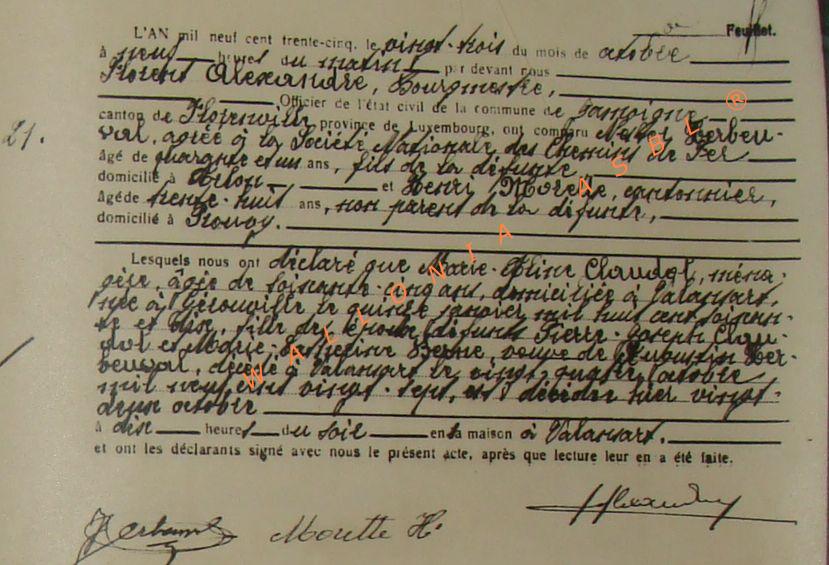 Feuillet.
L'AN mil neuf cent trente-cinq, le vingt-trois du mois de octobre
à neuf heures du matin, par devant nous
Florent Alexandre, Bourgmestre,
Officier de l'état civil de la commune de Jamoigne
canton de Florenville province de Luxembourg, ont comparu Herbeu-
21.
val, agréé à la Société Nationale des Chemins de Fer
âgé de quarante et un ans, fils de la défunte,
domicilié à Arlon, et Henri Morette, cantonnier,
âgé de trente-huit ans, non parent de la défunte,
domicilié à Prouvy.
Lesquels nous ont déclaré que Marie Claudot, ména-
gère, âgée de soixante-cinq ans, domiciliée à Valansart,
née à Gérouville le quinze janvier mil huit cent soixan-
te et dix, fille de époux défunts Pierre-Joseph Clau-
dot et Marie- veuve de Augustin Her-
beuval, décédé à Valansart le vingt-quatre octobre
mil neuf cent vingt-sept, est décédée hier vingt-
deux octobre
à dix heures du soir en sa maison à Valansart.
et ont les déclarants signé avec nous le présent acte, après que lecture leur en a été faite.
Herbeuval Morette H. Alexandre
WALLONIA ASBL ®